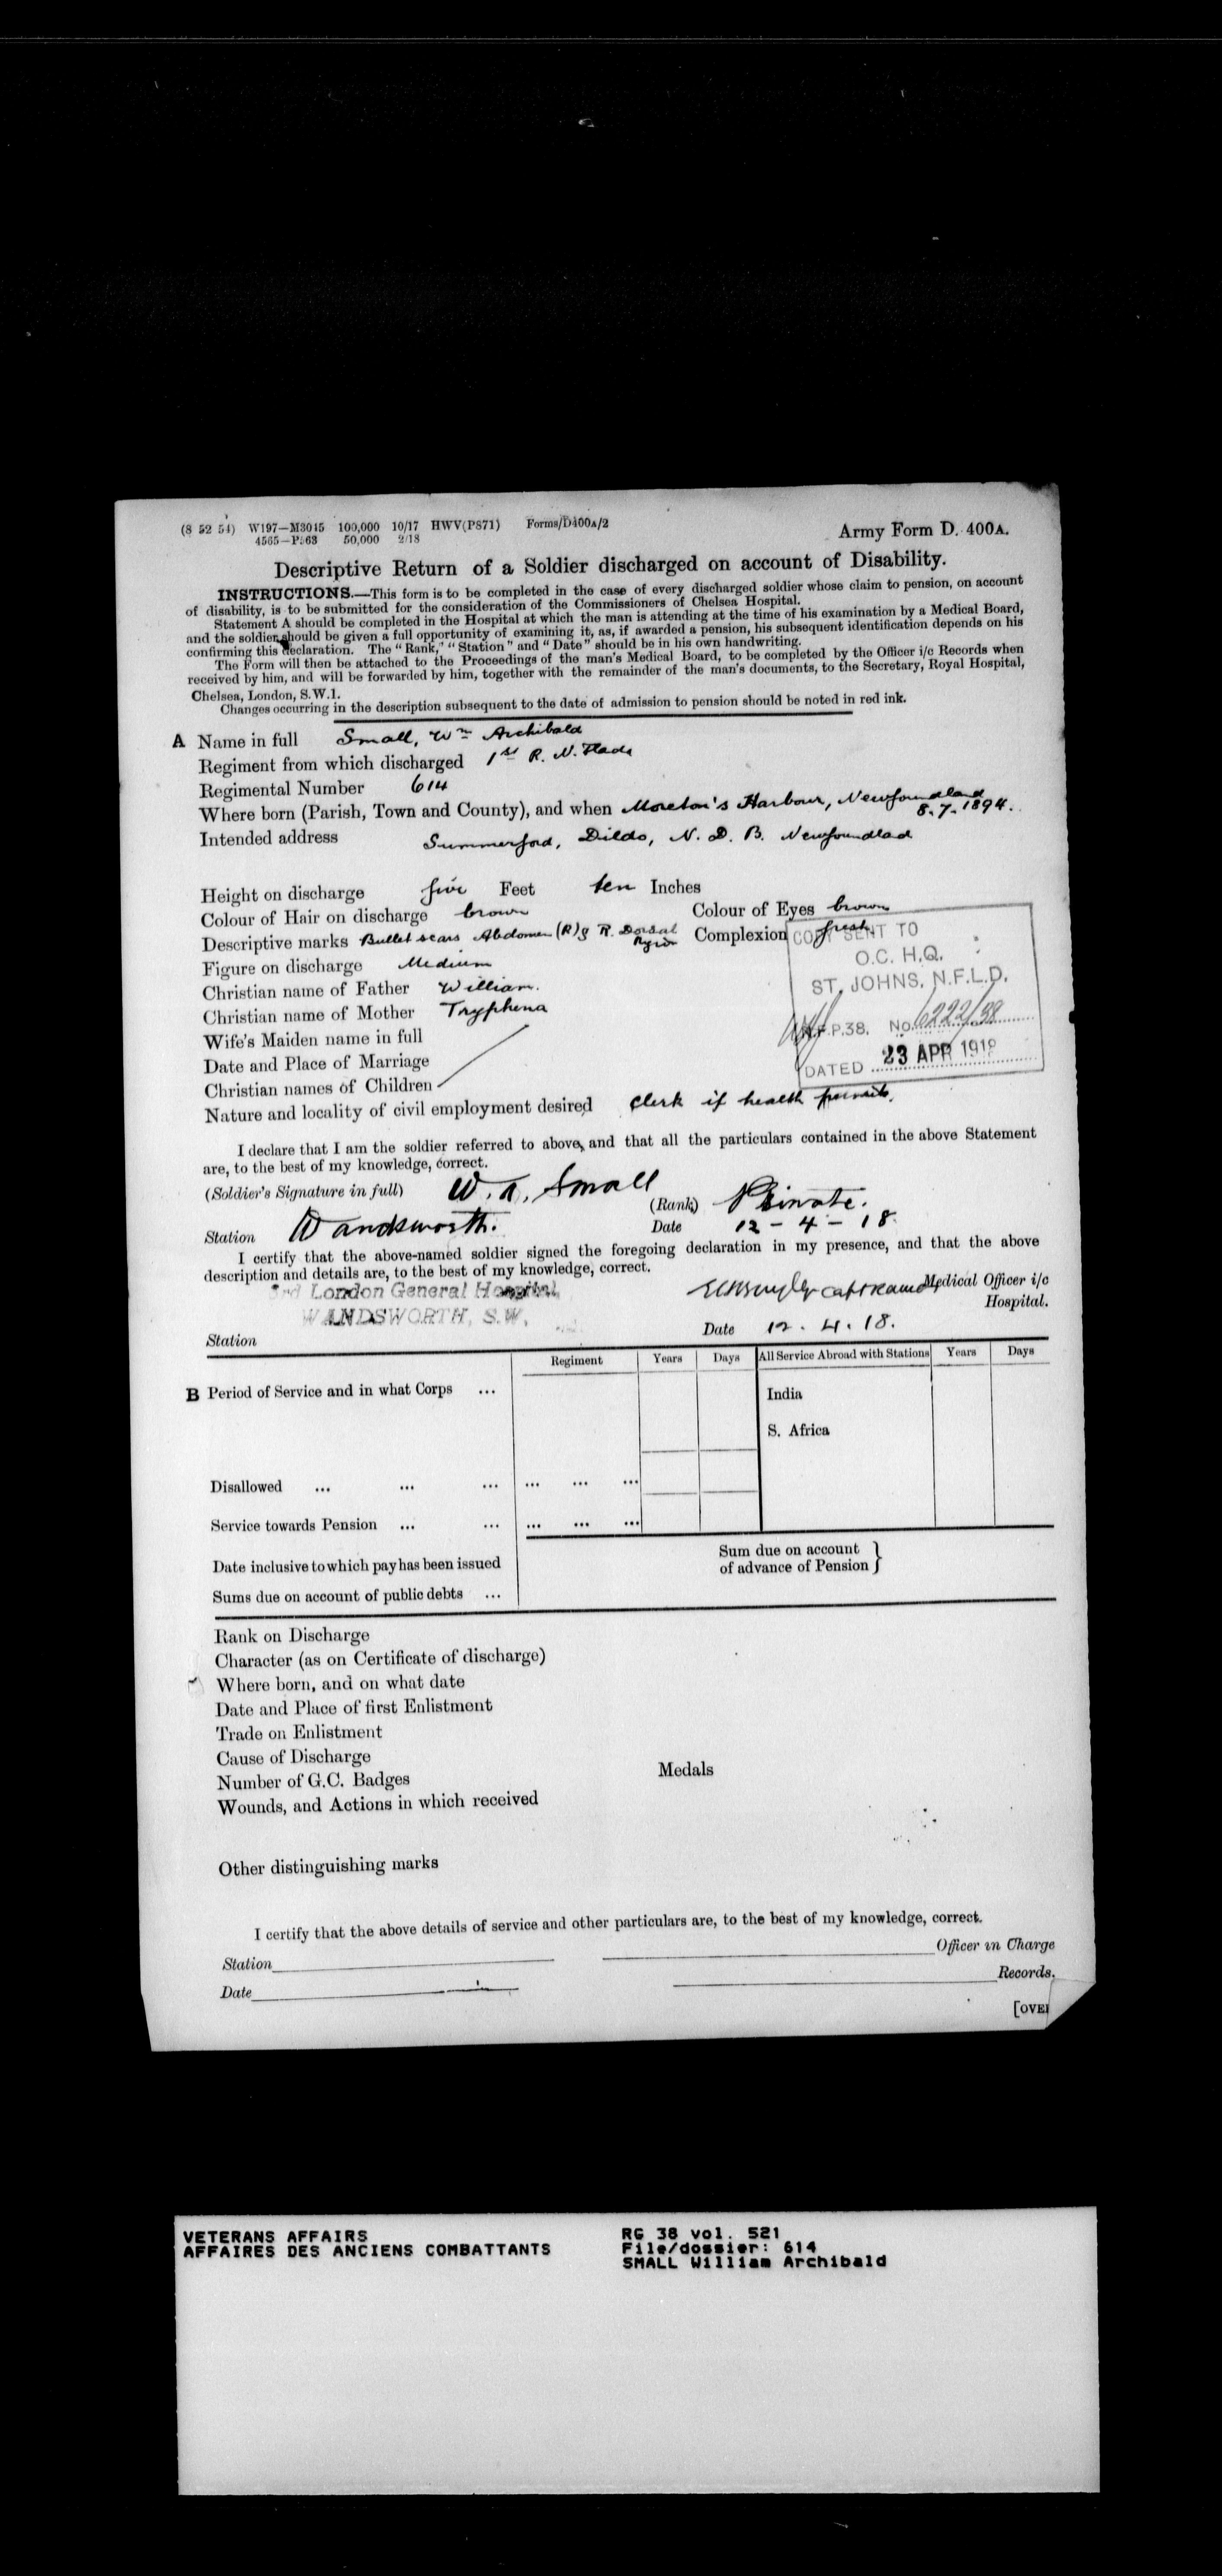 (8 52 54) W197—M3045 100,000 10/17 HWV(P871) Forms/D400A/2
4565—P.63 50,000 2/18
Army Form D. 400A.
Descriptive Return of a Soldier discharged on account of Disability.
INSTRUCTIONS.—This form is to be completed in the case of every discharged soldier whose claim to pension, on account
of disability, is to be submitted for the consideration of the Commissioners of Chelsea Hospital.
Statement A should be completed in the Hospital at which the man is attending at the time of his examination by a Medical Board,
and the soldier should be given a full opportunity of examining it, as, if awarded a pension, his subsequent identification depends on his
confirming this declaration. The "Rank," "Station" and "Date" should be in his own handwriting.
The Form will then be attached to the Proceedings of the man's Medical Board, to be completed by the Officer i/c Records when
received by him, and will be forwarded by him, together with the remainder of the man's documents, to the Secretary, Royal Hospital,
Chelsea, London, S.W.1.
Changes occurring in the description subsequent to the date of admission to pension should be noted in red ink.
A Name in full Small, Wm Archibald
Regiment from which discharged 1st R. N. Flads
Regimental Number 614
Where born (Parish, Town and County), and when Moreton's Harbour, Newfoundland
8.7.1894.
Intended address Summerford, Dildo, N. D. B. Newfoundlad
Height on discharge five Feet ten Inches
Colour of Hair on discharge brown Colour of Eyes brown
Descriptive marks Bullet scars Abdomen (R) & R. Dorsal Region Complexion fresh
Figure on discharge Medium
Christian name of Father William.
Christian name of Mother Tryphena
Wife's Maiden name in full
Date and Place of Marriage
Christian names of Children
Nature and locality of civil employment desired Clerk if health permits.
COPY SENT TO
O.C. H.Q.
ST. JOHNS, N.F.L.D.
N.F.P.38. No. 6222/58
DATED 23 APR 1918
I declare that I am the soldier referred to above, and that all the particulars contained in the above Statement
are, to the best of my knowledge, correct.
(Soldier's Signature in full) W. A. Small (Rank) Private.
Station Wandsworth. Date 12-4-18
I certify that the above-named soldier signed the foregoing declaration in my presence, and that the above
description and details are, to the best of my knowledge, correct.
3rd London General Hospital
WANDSWORTH, S.W.
Capt RAMC Medical Officer i/c
Hospital.
Station Date 12.4.18.
Regiment Years Days All Service Abroad with Stations Years Days
B Period of Service and in what Corps ... India
S. Africa
Disallowed ... ... ... ... ... ...
Service towards Pension ... ... ... ... ...
Date inclusive to which pay has been issued Sum due on account
of advance of Pension }
Sums due on account of public debts ...
Rank on Discharge
Character (as on Certificate of discharge)
Where born, and on what date
Date and Place of first Enlistment
Trade on Enlistment
Cause of Discharge
Number of G.C. Badges Medals
Wounds, and Actions in which received
Other distinguishing marks
I certify that the above details of service and other particulars are, to the best of my knowledge, correct.
Station Officer in Charge
Date Records.
[OVE
VETERANS AFFAIRS
AFFAIRES DES ANCIENS COMBATTANTS
RG 38 vol. 521
File/dossier: 614
SMALL William Archibald